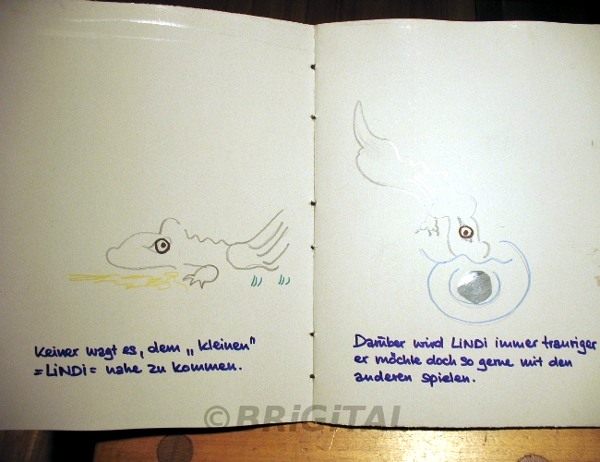 Keiner wagt es, dem „kleinen"
=LiNDi= nahe zu kommen.
Darüber wird LiNDi immer trauriger
er möchte doch so gerne mit den
anderen spielen.
©BRiGiTAL